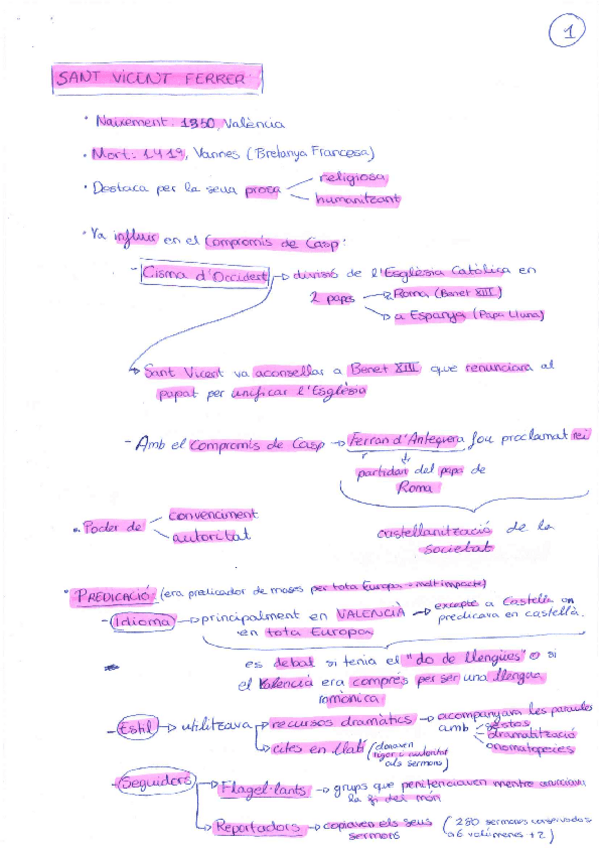 1
SANT VICENT FERRER
· Naixement: 1350, València
· Mort: 1419, Vannes (Bretanya Francesa)
· Destaca per la seua prosa religiosa
humanitzant
· Va influir en el Compromís de Casp:
- Cisma d'Occident → divisió de l'Església Catòlica en
2 papes → Roma (Benet XIII)
→ a Espanya (Papa Lluna)
→ Sant Vicent va aconsellar a Benet XIII que renunciara al
papat per unificar l'Església
- Amb el Compromís de Casp → Ferran d'Antequera fou proclamat rei
partidari del papa de
Roma
· Poder de convenciment
autoritat
castellanització de la
societat
· PREDICACIÓ (era predicador de mases per tota Europa → molt impacte)
- Idioma → principalment en VALENCIÀ → excepte a Castella on
en tota Europa predicava en castellà.
es debat si tenia el "do de llengües" o si
el Valencià era comprés per ser una llengua
romànica
- Estil → utilitzava → recursos dramàtics → acompanyava les paraules
amb gestos
dramatització
onomatopeies
→ cites en llatí (donaven
rigor i autoritat
als sermons)
- Seguidors → Flagel·lants → grups que penitenciaven mentre anunciaven
la fi del món
→ Reportadors → copiaven els seus
sermons (280 sermones conservados
6 volúmenes + 2)